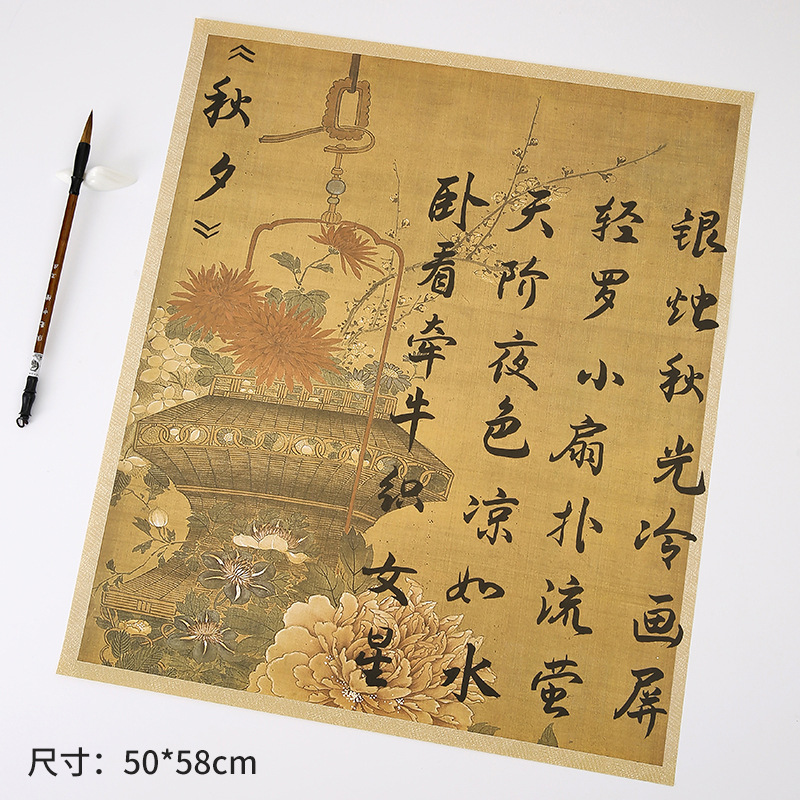 银烛秋光冷画屏
轻罗小扇扑流萤
天阶夜色凉如水
卧看牵牛织女星
《秋夕》
尺寸：50*58cm